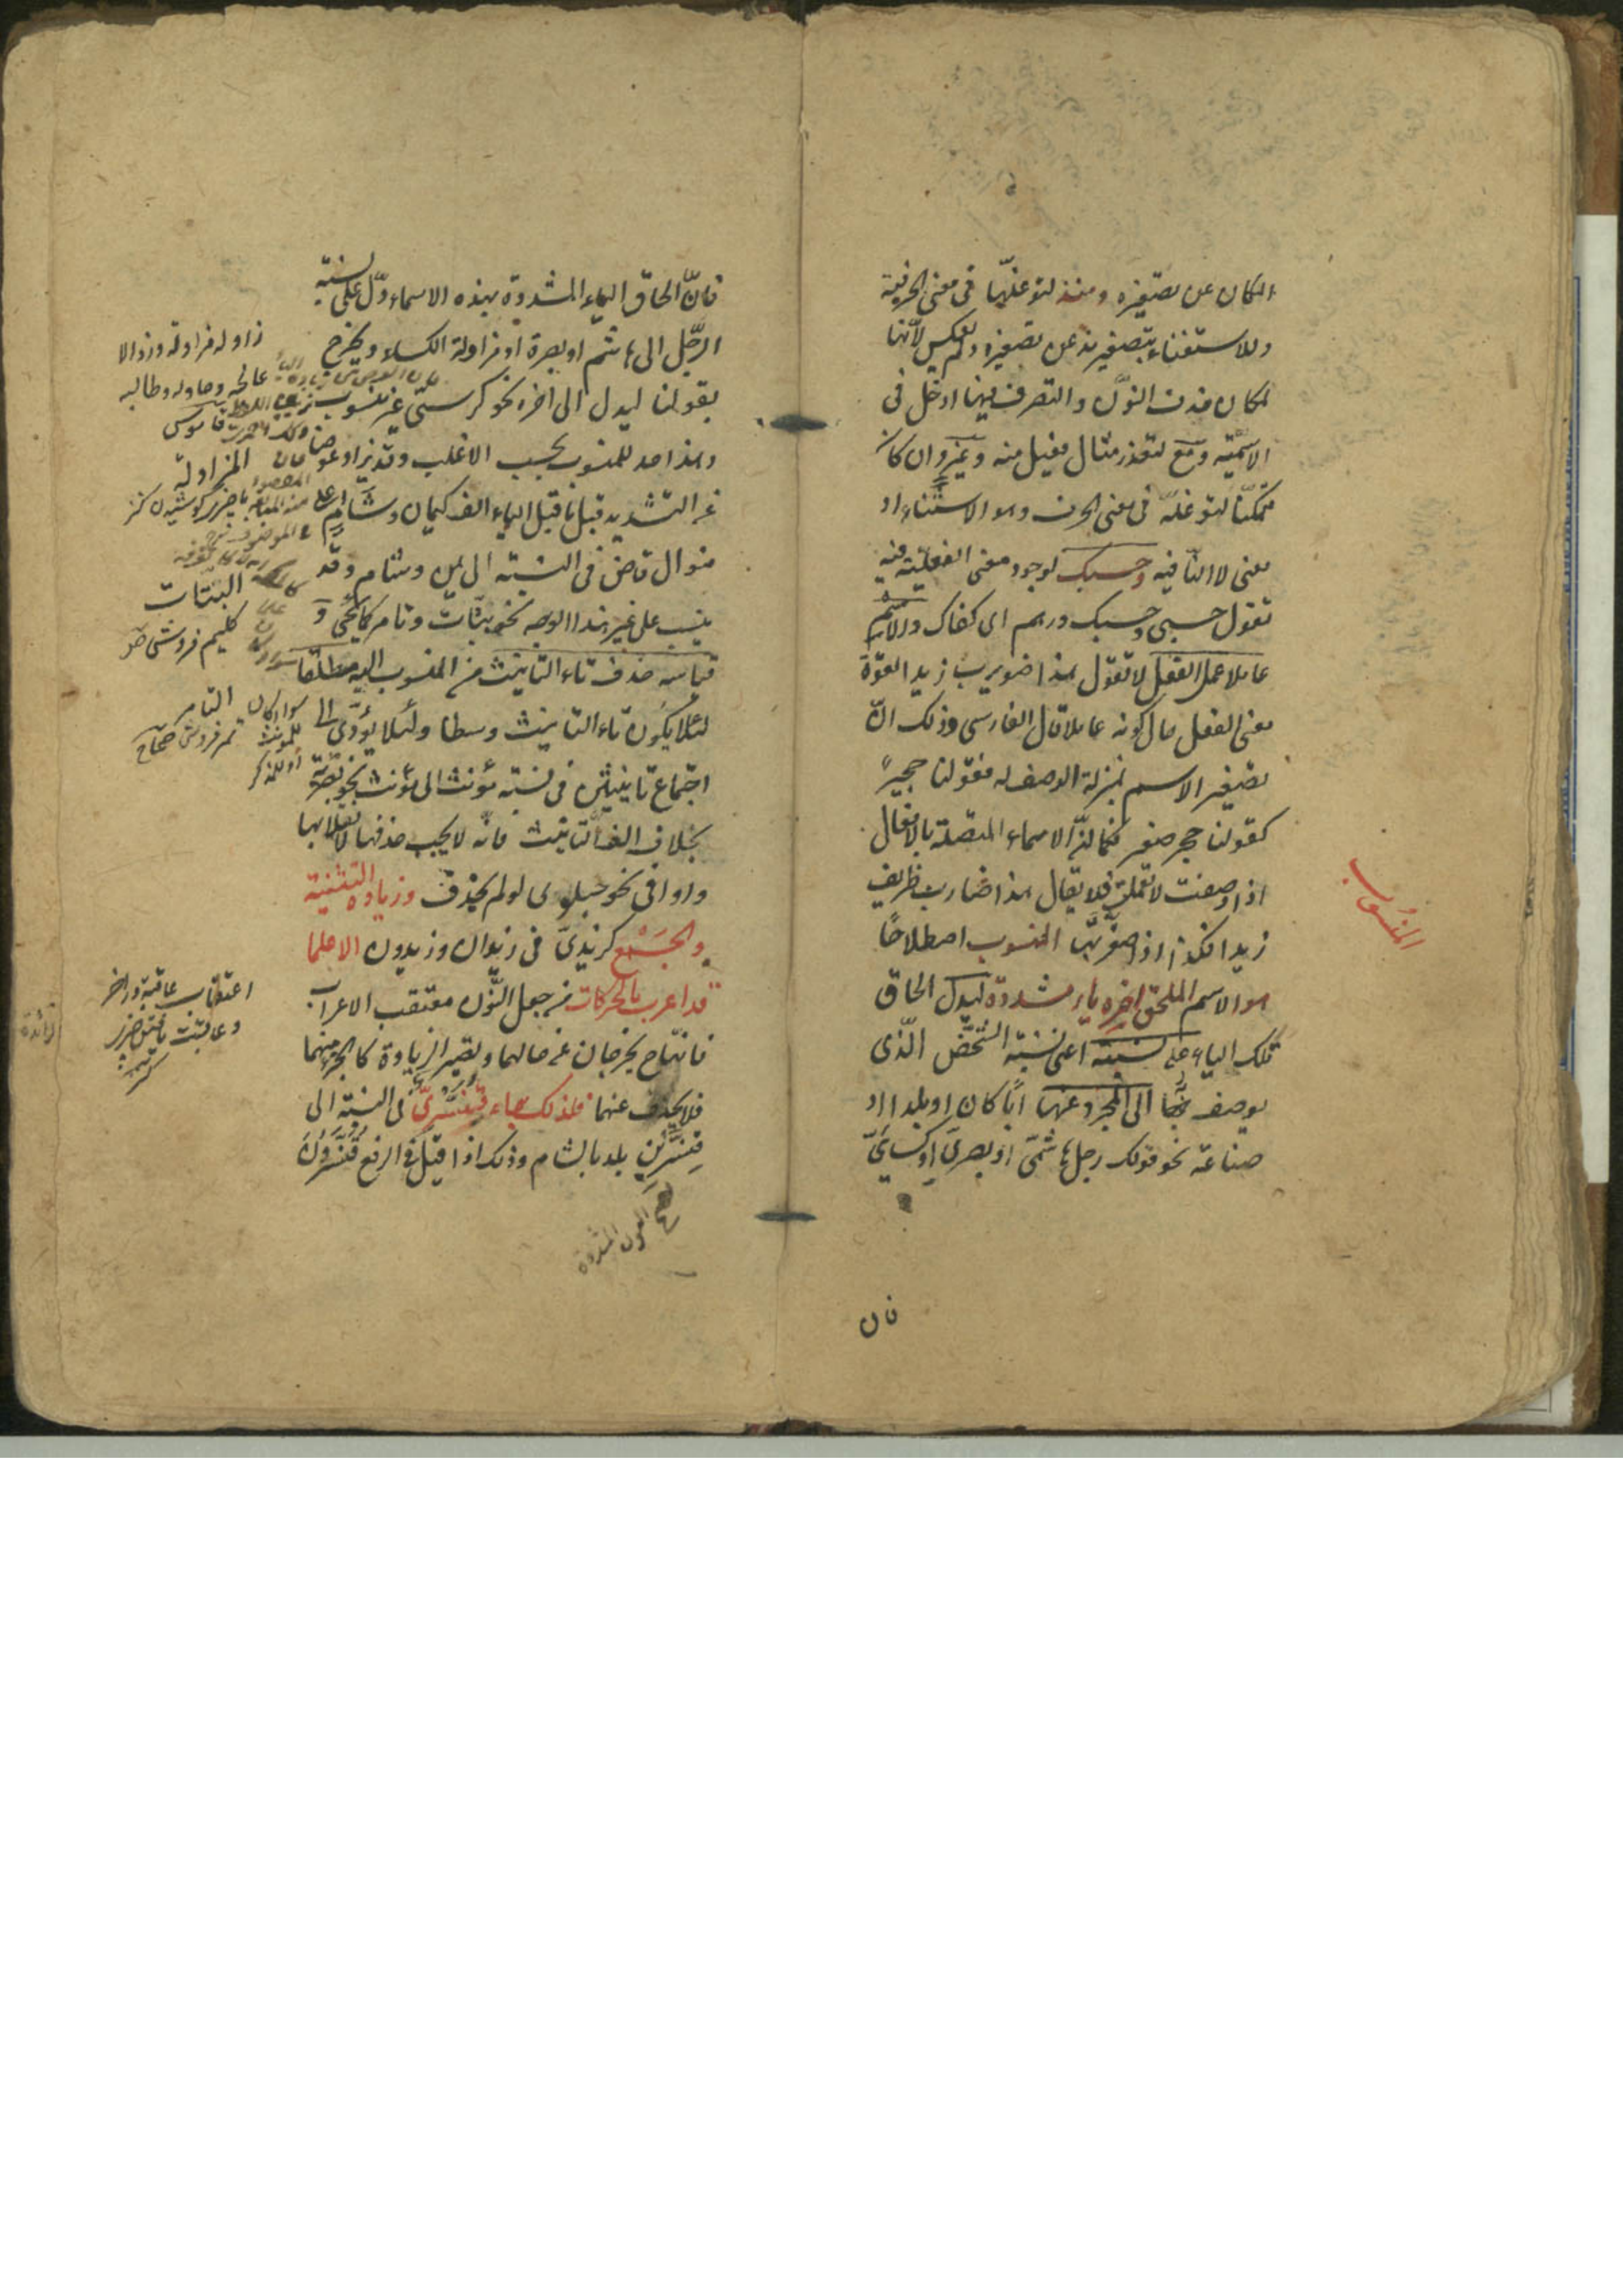 المكان عن تصغيره ومنذ لتوغلها فى معنى الحرفية
وللاستغناء بتصغير مذ عن تصغيره ولم يعكس لانها
لمكان حذف النون والتصرف فيها ادخل فى
الاسمية ومع لتعذر مثال فعيل منه وغير وان كان
متمكنا لتوغله فى معنى الحرف وهو الاستثناء او
معنى لا النافية وحسبك لوجود معنى الفعلية فيه
تقول حسبى وحسبك درهم اى كفاك والاسم
عاملا عمل الفعل لا تقول هذا ضويرب زيدا لقوة
معنى الفعل حال كونه عاملا قال الفارسى وذلك ان
تصغير الاسم بمنزلة الوصف له فقولنا حجير
كقولنا حجر صغير فكما ان الاسماء المتصلة بالافعال
اذا وصفت لا تعمل فلا يقال هذا ضارب ظريف
زيدا فكذا اذا صغرتها المنسوب اصطلاحا
هو الاسم الملحق اخره ياء مشددة ليدل الحاق
تلك الياء على نسبته اعنى نسبة الشخص الذى
يوصف بها الى المجرد عنها ابا كان او بلدا او
صناعة نحو قولك رجل هاشمى او بصرى او كسائى
المنسوب
فان
فان الحاق الياء المشددة بهذه الاسماء دل على نسبة
الرجل الى هاشم او بصرة او مزاولة الكساء ويخرج
بقولنا ليدل الى اخره نحو كرسى غير منسوب
وهذا حد للمنسوب بحسب الاغلب وقد يزاد عوضا
عن التشديد قبل ما قبل الياء الف كيمان وشام على
منوال قاض فى النسبة الى يمن وشام وقد
ينسب على غير هذا الوجه نحو بتات وتامر كما يجئ و
قياسه حذف تاء التأنيث من المنسوب اليه مطلقا
لئلا يكون تاء التأنيث وسطا ولئلا يؤدى الى
اجتماع تأنيثين فى نسبة مؤنث الى مؤنث نحو بصرية
بخلاف الف التأنيث فانه لا يجب حذفها لانقلابها
واوا فى نحو حبلوى لو لم يحذف وزيادة التثنية
والجمع كزيدى فى زيدان وزيدون الا علما
قد اعرب بالحركات من جعل النون معتقب الاعراب
فانهما ح يخرجان عن حالهما ويصير الزيادة كالجزء منهما
فلا يحذف عنهما فلذلك جاء قنسرينى فى النسبة الى
قنسرين بلد بالشام وذلك اذا قيل فى الرفع قنسرون
زاوله مزاولة وزوالا
عالجه وحاوله وطالبه
قاموس
المزاولة
البتات
كليم فروش
التامر
تمر فروش صحاح
سواء كان
للمؤنث
او للمذكر
اعتقاب
النون المشددة
زائدة